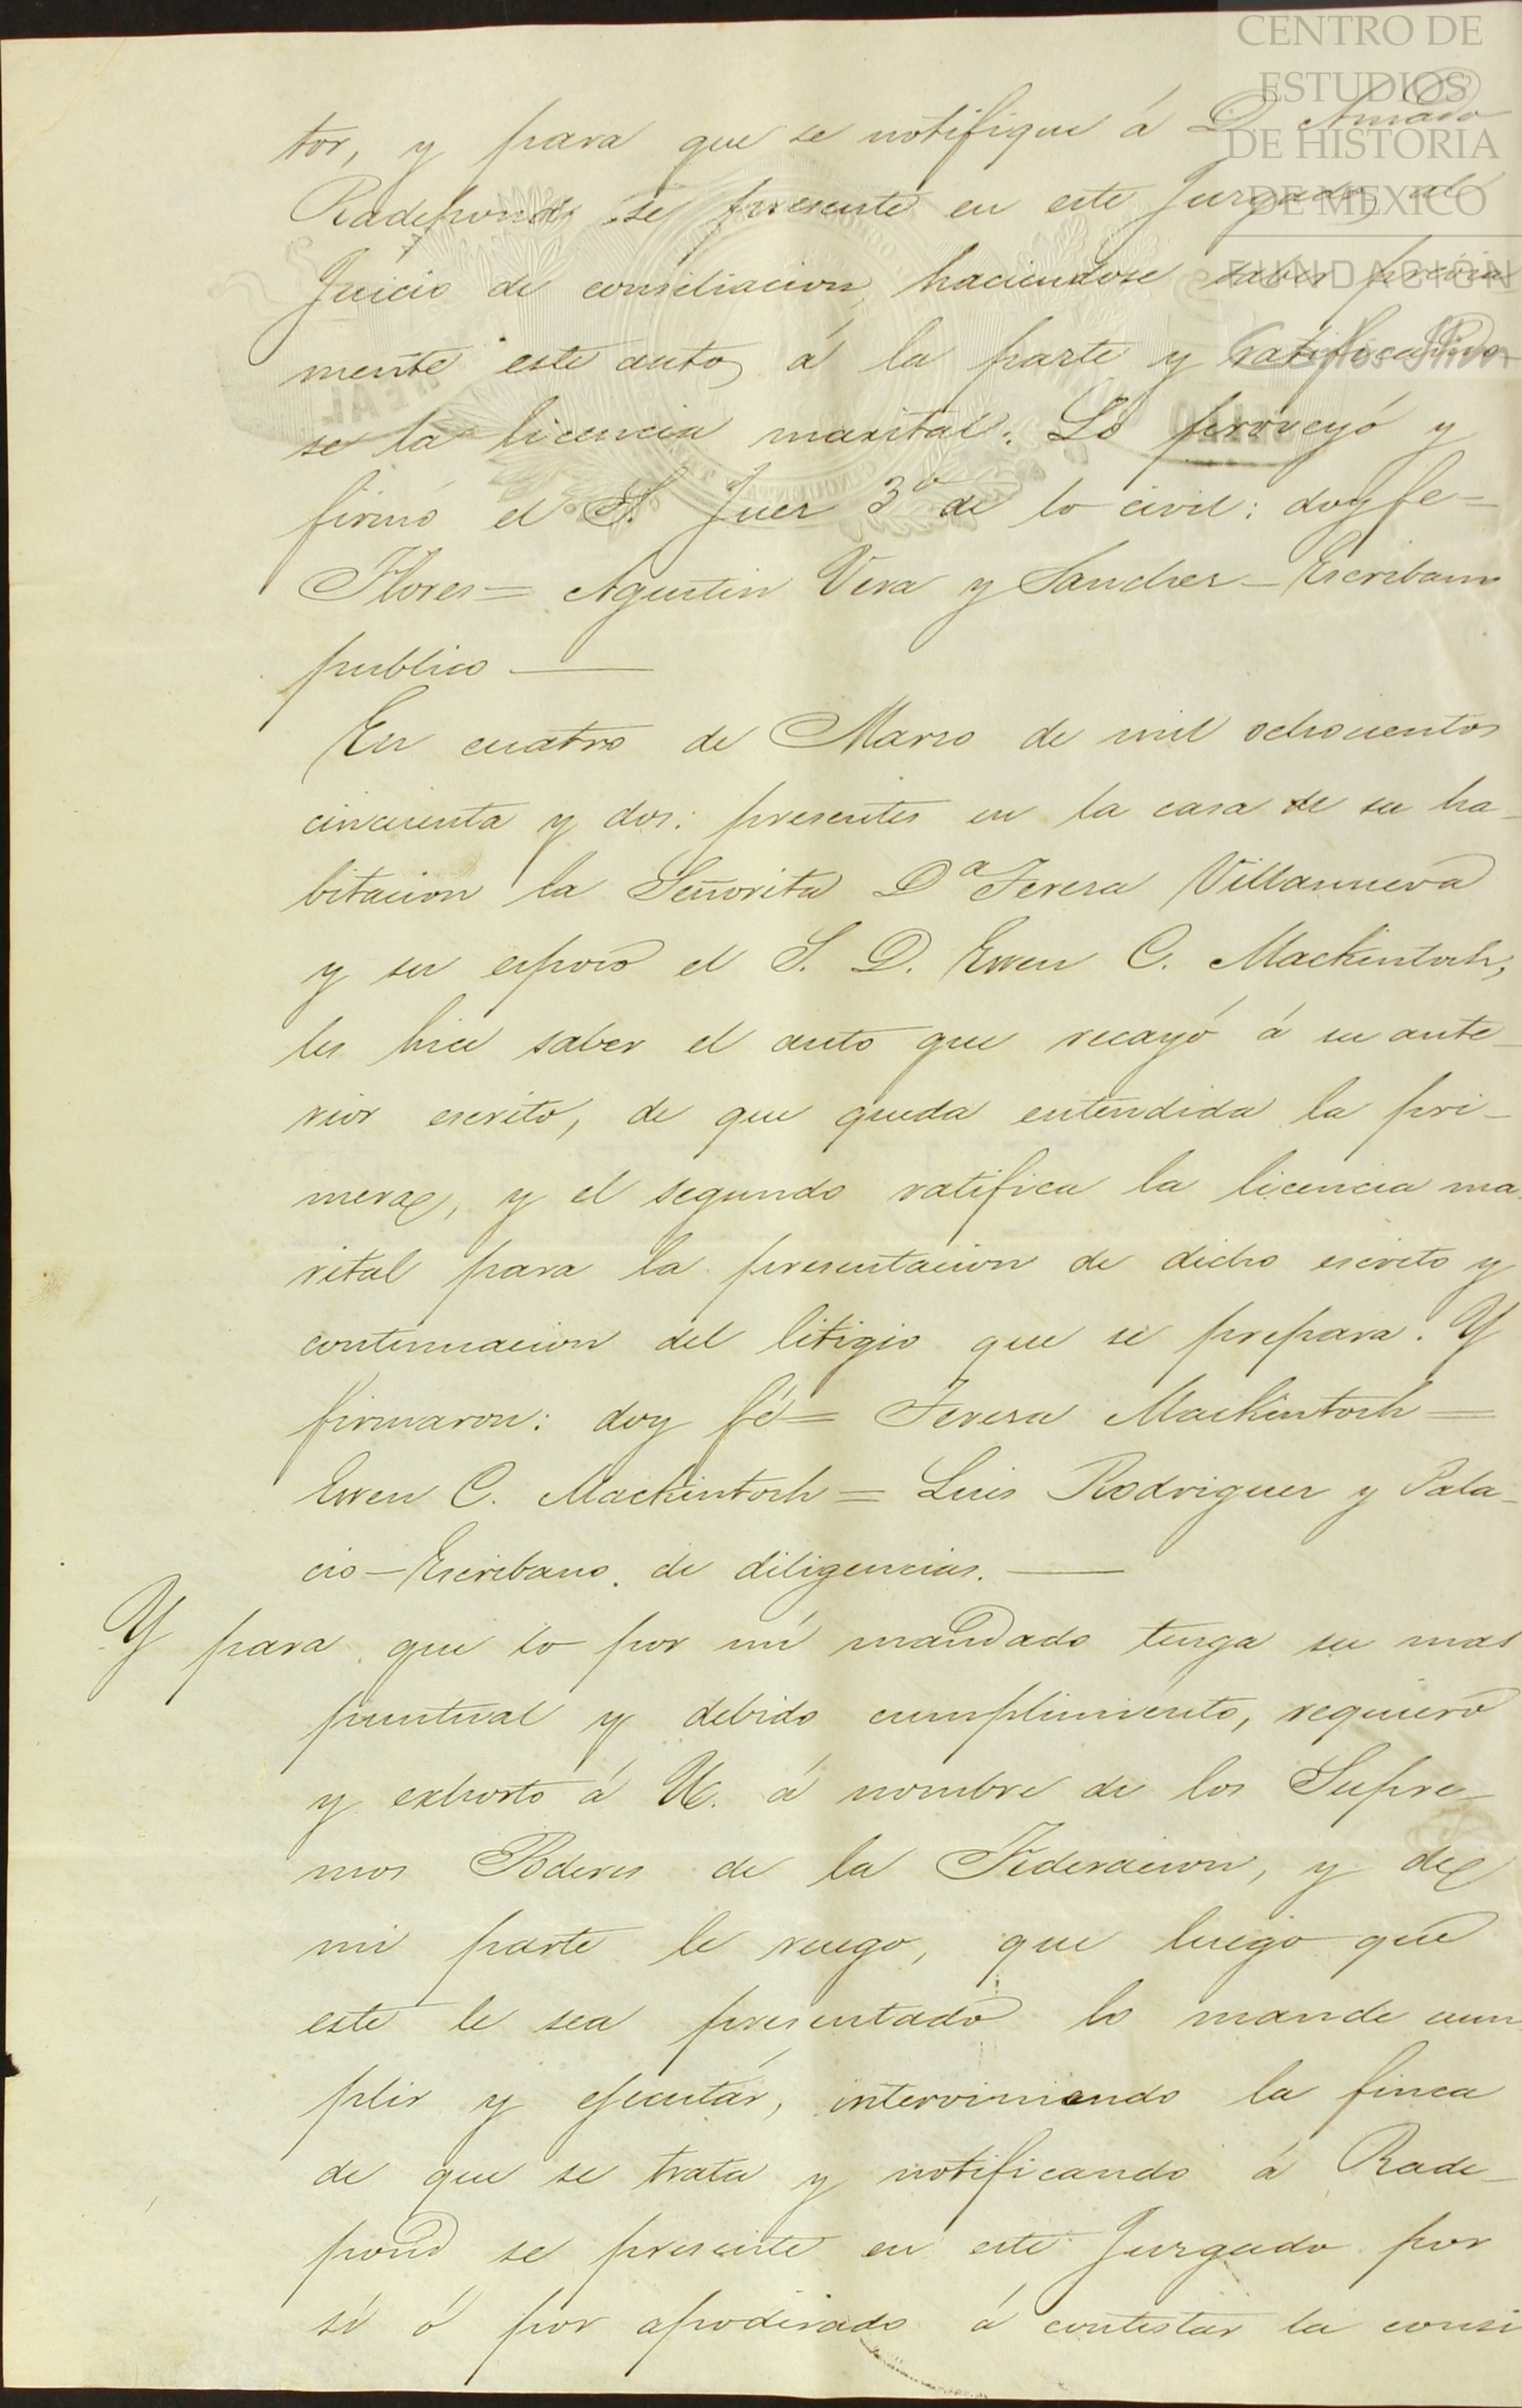 CENTRO DE
ESTUDIOS
DE HISTORIA
DE MEXICO
FUNDACIÓN
tor, y para que se notifique á D. Amado
Radepond, se presente en este Juzgado, al
Juicio de consiliacion, haciendose saber previa
mente este auto, á la parte y ratificando
se la licencia marital. Lo proveyó y
firmó el S. Juez 3º de lo civil: doy fe=
Flores= Agustin Vera y Sanchez- Escribano
publico —
En cuatro de Marzo de mil ochocientos
cincuenta y dos: presentes en la casa de su ha-
bitacion la Señorita Dª Teresa Villanueva
y su esposo el S. D. Ewen C. Mackintosh,
les hice saber el auto que recayó á su ante-
rior escrito, de que queda entendida la pri-
mera, y el segundo ratifica la licencia ma-
rital para la presentacion de dicho escrito y
continuacion del litigio que se prepara. Y
firmaron: doy fé= Teresa Mackintosh=
Ewen C. Mackintosh= Luis Rodriguez y Pala-
cio- Escribano de diligencias. —
Y para que lo por mí mandado tenga su mas
puntual y debido cumplimiento, requiero
y exhorto á U. á nombre de los Supre-
mos Poderes de la Federacion, y de
mi parte le ruego, que luego que
este le sea presentado lo mande cum
plir y ejecutár, interviniendo la finca
de que se trata y notificando á Rade-
pond se presente en este Juzgado por
sí ó por apoderado á contestar la consi